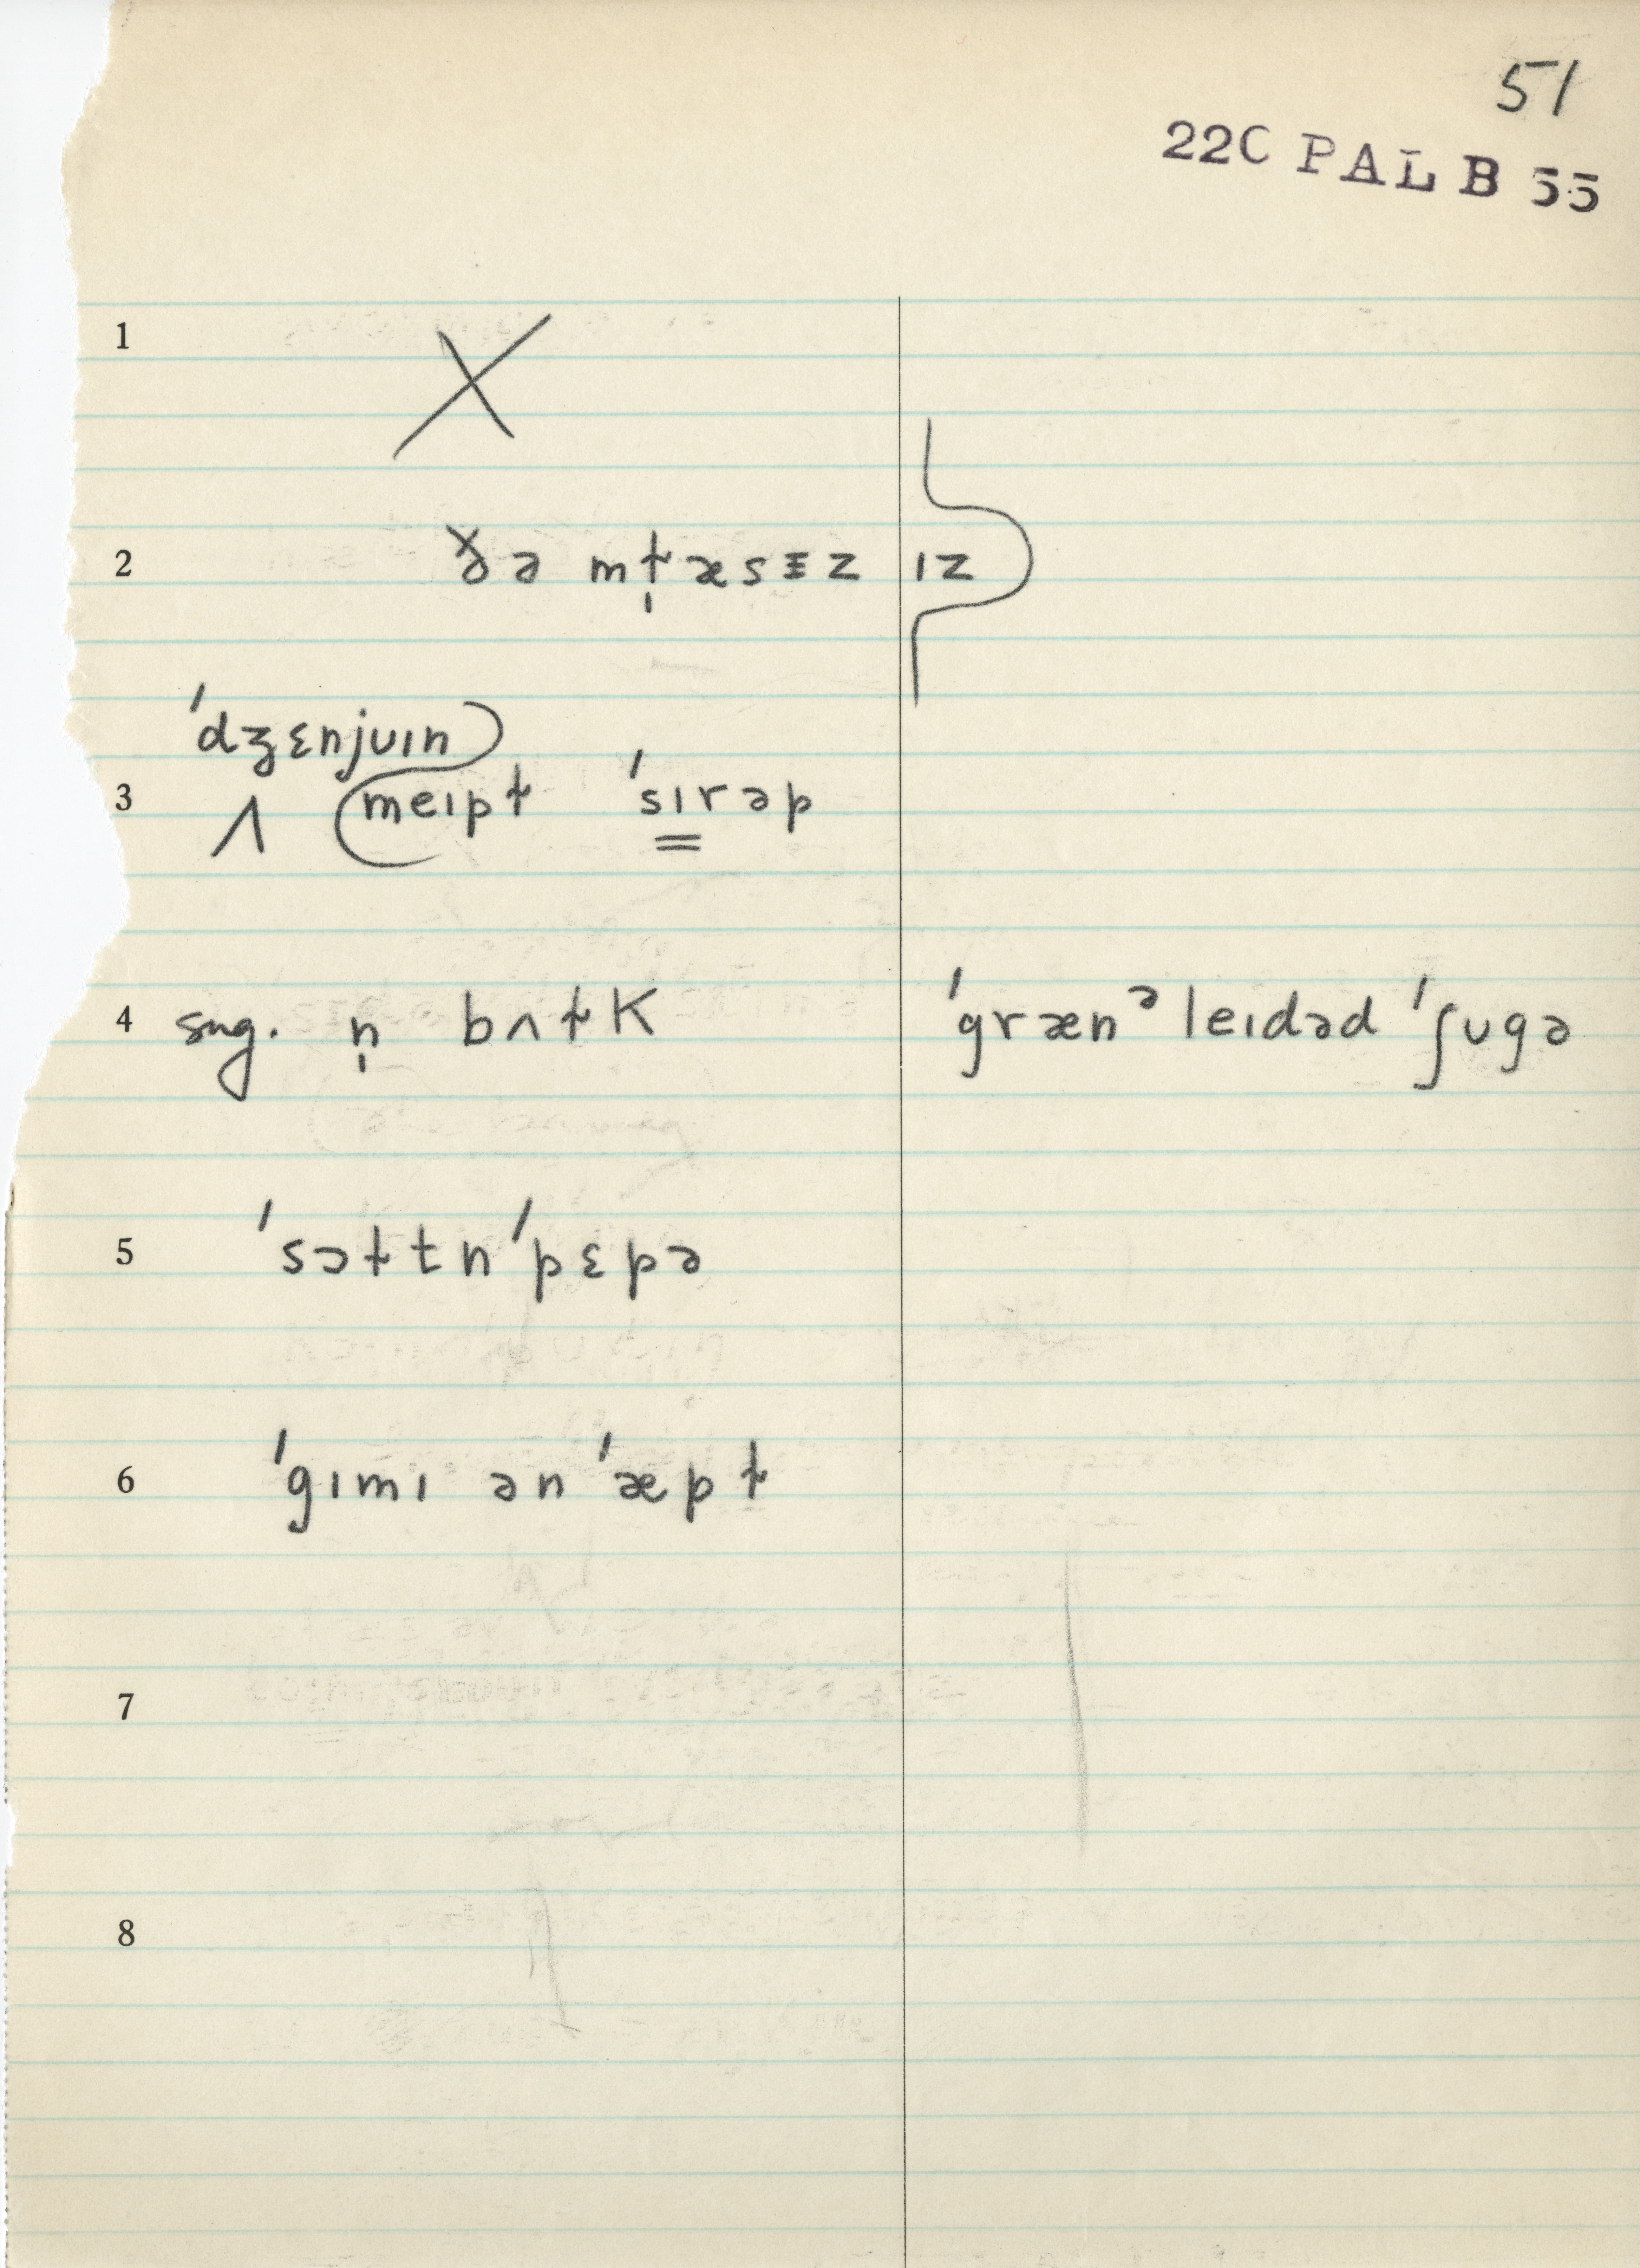 51
22C PAL B 55
1
2 ðə mɫ̩æsᵻz ɪz
ˈdʒɛnjʊɪn
3 ʌ meɪpɫ ˈsɪrəp
4 sug. n̩ bʌɫk ˈgrænᵊleɪdəd ˈʃʊgə
5 ˈsɔɫt n ˈpɛpə
6 ˈgɪmɪ ən ˈæpɫ
7
8